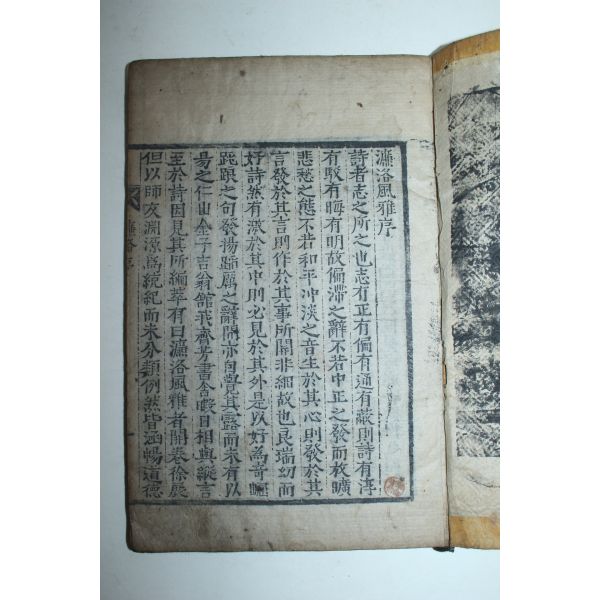 濂洛風雅序
詩者志之所之也志有正有偏有通有蔽則詩有淳
有駁有晦有明故偏滯之辭不若中正之發而放曠
悲愁之態不若和平冲淡之音生於其心則發於其
言發於其言則作於其事所關非細故也良瑞幼而
好詩然有激於其中則必見於其外是以好為奇
踉之句發揚蹈厲之辭閒亦自覺其露而未有以
易之仁山金子吉翁館我齊芳書舍暇日相與縱言
至於詩因見其所編萃有曰濂洛風雅者開卷徐展
但以師友淵源為統紀而未分類例然皆涵暢道德
濂洛序